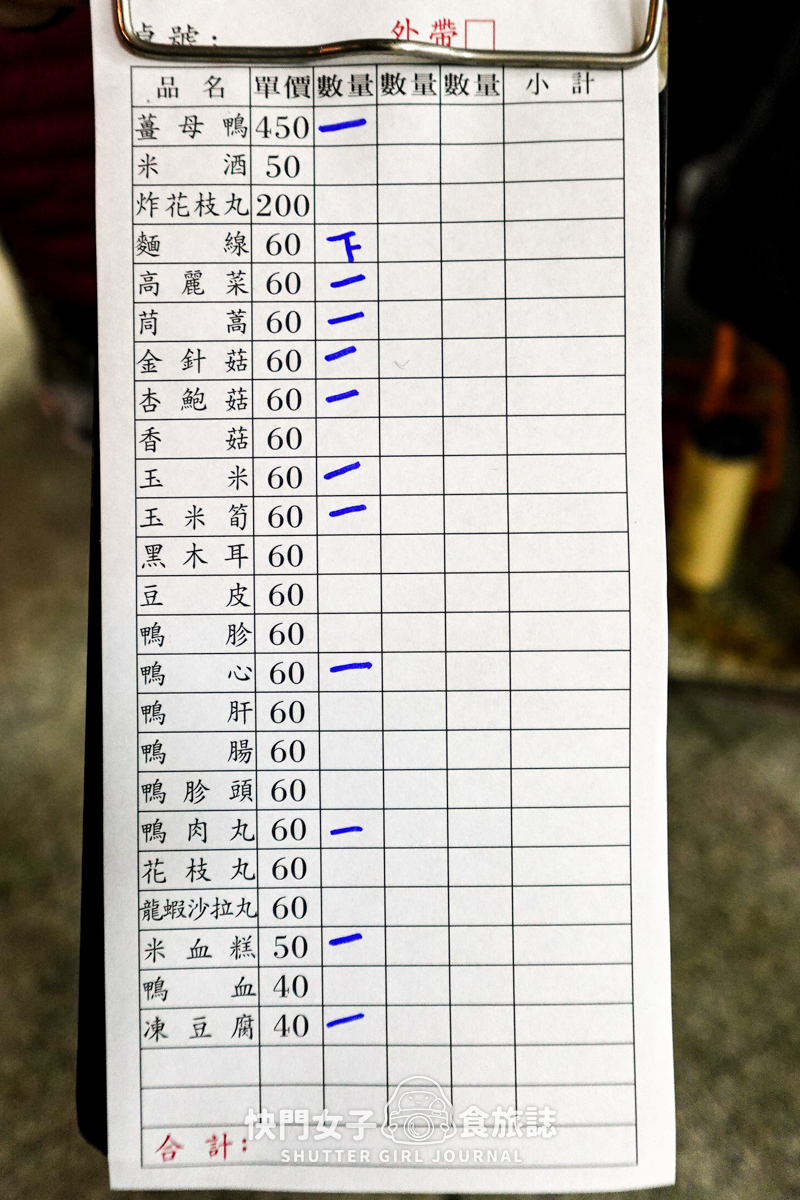 桌號： 外帶□
品名 單價 數量 數量 數量 小計
薑母鴨 450 一
米酒 50
炸花枝丸 200
麵線 60 下
高麗菜 60 一
茼蒿 60 一
金針菇 60 一
杏鮑菇 60 一
香菇 60
玉米 60 一
玉米筍 60 一
黑木耳 60
豆皮 60
鴨胗 60
鴨心 60 一
鴨肝 60
鴨腸 60
鴨胗頭 60
鴨肉丸 60 一
花枝丸 60
龍蝦沙拉丸 60
米血糕 50 一
鴨血 40
凍豆腐 40 一
合計：
快門女子 食旅誌
SHUTTER GIRL JOURNAL